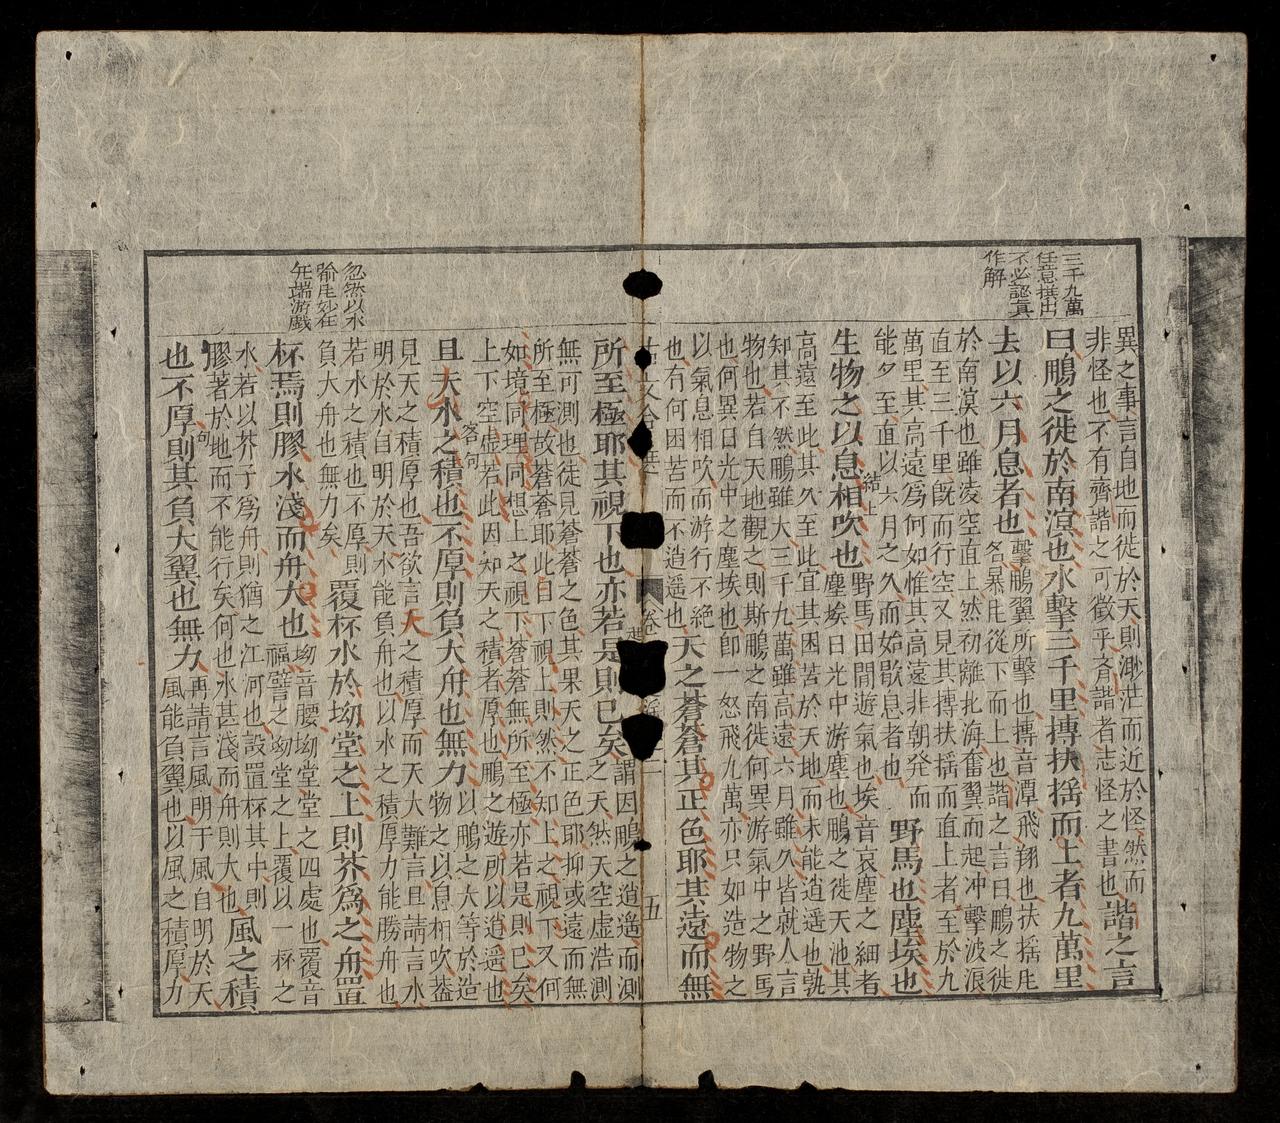 三千九萬
任意撰出
不必認真
作解
異之事言自地而徙於天則渺茫而近於怪然而
非怪也不有齊諧之可徵乎齊諧者志怪之書也
諧之言
曰鵬之徙於南溟也水擊三千里摶扶搖而上者九萬里
去以六月息者也
擊鵬翼所擊也摶音潭飛翔也扶搖风
名暴风從下而上也諧之言曰鵬之徙
於南漠也雖凌空直上然初離北海奮翼而起冲擊波浪
直至三千里旣而行空又見其摶扶搖而直上者至於九
萬里其高遠爲何如惟其高遠非朝發而
能夕至直以六月之久而始歇息者也
結上
野馬也塵埃也
生物之以息相吹也
野馬田間遊氣也埃音哀塵之細者
塵埃日光中游塵也鵬之徙天池其
高遠至此其久至此宜其困苦於天地而未能逍遥也孰
知其不然鵬雖大三千九萬雖高遠六月雖久皆就人言
物也若自天地觀之則斯鵬之南徙何異游氣中之野馬
也何異日光中之塵埃也卽一怒飛九萬亦只如造物之
以氣息相吹而游行不絶
也有何困苦而不逍遥也
天之蒼蒼其正色耶其遠而無
卷
五
忽然以水
喻风妙在
無端游戲
所至極耶其視下也亦若是則已矣
謂因鵬之逍遥而測
之天然天空虛浩測
無可測也徒見蒼蒼之色其果天之正色耶抑或遠而無
所至極故蒼蒼耶此自下視上則然不知上之視下又何
如境同理同想上之視下蒼蒼無所至極亦若是則已矣
上下空虛若此因知天之積者厚也鵬之遊所以逍遥也
且夫水之積也不厚則負大舟也無力
客句
以鵬之大等於造
物之以息相吹蓋
見天之積厚也吾欲言大之積厚而天大難言且請言水
明於水自明於天水能負舟也以水之積厚力能勝舟也
若水之積也不厚則
負大舟也無力矣
覆杯水於坳堂之上則芥爲之舟置
杯焉則膠水淺而舟大也
坳音腰坳堂堂之四處也覆音
福譬之坳堂之上覆以一杯之
水若以芥子爲舟則猶之江河也設置杯其中則
膠著於地而不能行矣何也水甚淺而舟則大也
風之積
也不厚則其負大翼也無力
句
再請言風明于風自明於天
風能負翼也以風之積厚力